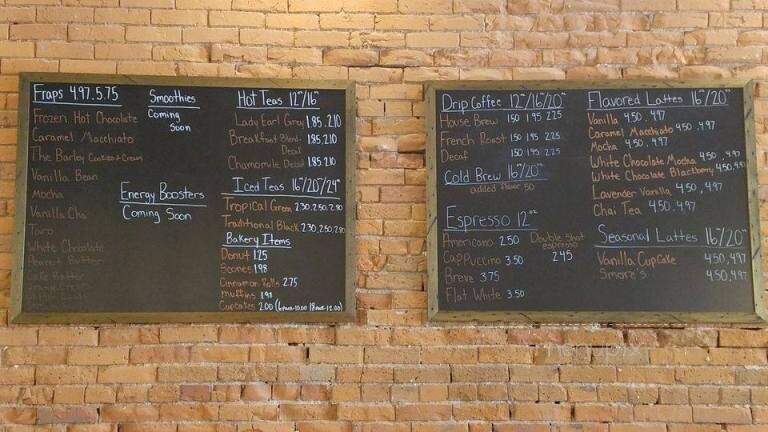 Fraps 4.97.5.75
Frozen Hot Chocolate
Caramel Macchiato
The Barley Cookies and Cream
Vanilla Bean
Mocha
Vanilla Chai
Toro
White Chocolate
Peanut Butter
Smoothies
Coming
Soon
Energy Boosters
Coming Soon
Hot Teas 12"/16"
Lady Earl Grey 1.85.2.10
Breakfast Blend 1.85.2.10
Decaf
Chamomile Decaf 1.85.2.10
Iced Teas 16"/20"/24"
Tropical Green 2.30.2.50.2.80
Traditional Black 2.30.2.50.2.80
Bakery Items
Donut 1.25
Scones 1.98
Cinnamon Rolls 2.75
muffins 1.98
Cupcakes 2.00
Drip Coffee 12"/16"/20"
House Brew 1.50 1.95 2.25
French Roast 1.50 1.95 2.25
Decaf 1.50 1.95 2.25
Cold Brew 16"/20"
added flavor .50
Espresso 12"
Americano 2.50
Cappuccino 3.50
Breve 3.75
Flat White 3.50
Double Shot
espresso
2.45
Flavored Lattes 16"/20"
Vanilla 4.50.4.97
Caramel Macchiato 4.50.4.97
Mocha 4.50.4.97
White Chocolate Mocha 4.50.4.97
White Chocolate Blackberry 4.50.4.97
Lavender Vanilla 4.50.4.97
Chai Tea 4.50.4.97
Seasonal Lattes 16"/20"
Vanilla Cupcake 4.50.4.97
Smore's 4.50.4.97